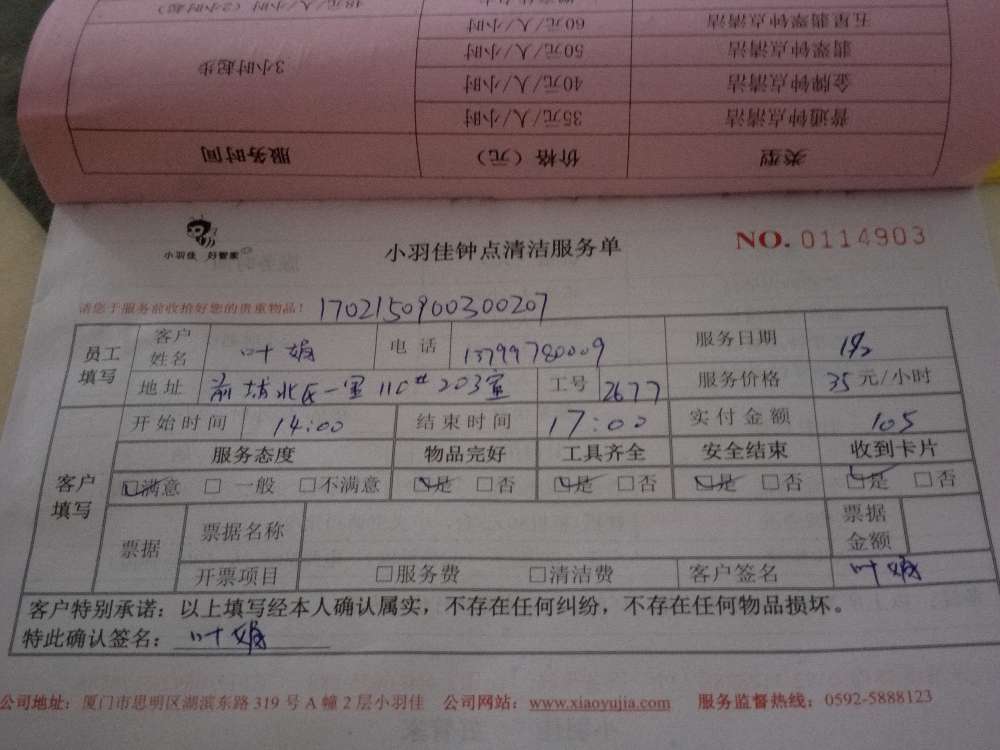 48元/人/小时 (2小时起)
五星翡翠钟点清洁 60元/人/小时
翡翠钟点清洁 50元/人/小时
金牌钟点清洁 40元/人/小时 3小时起步
普通钟点清洁 35元/人/小时
类型 价格（元） 服务时间
小羽佳 好管家
小羽佳钟点清洁服务单
NO. 0114903
请您于服务前收拾好您的贵重物品！ 1702150900300207
员工填写 客户姓名 叶娟 电话 13799780009 服务日期
地址 前埔北区一里110# 203室 工号 2677 服务价格 35元/小时
客户填写 开始时间 14:00 结束时间 17:00 实付金额 105
服务态度 物品完好 工具齐全 安全结束 收到卡片
□满意 □ 一般 □不满意 □是 □否 □是 □否 □是 □否 □是 □否
票据 票据名称 票据金额
开票项目 □服务费 □清洁费 客户签名 叶娟
客户特别承诺：以上填写经本人确认属实，不存在任何纠纷，不存在任何物品损坏。
特此确认签名：叶娟
公司地址：厦门市思明区湖滨东路 319 号 A 幢 2 层小羽佳 公司网站：www.xiaoyujia.com 服务监督热线：0592-5888123